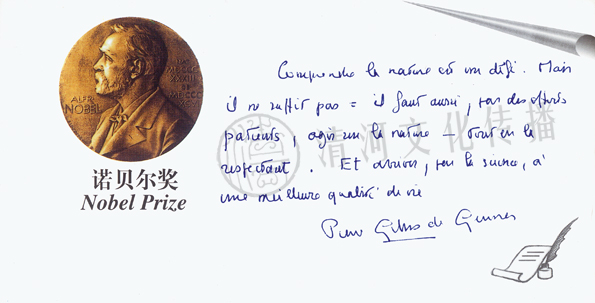 ALFR.
NOBEL
诺贝尔奖
Nobel Prize
Comprendre la nature est un défi. Mais
il ne suffit pas = il faut aussi, par des efforts
patients, agir sur la nature — tout en la
respectant. Et arriver, par la science, à
une meilleure qualité de vie
Pierre Gilles de Gennes
清河文化传播